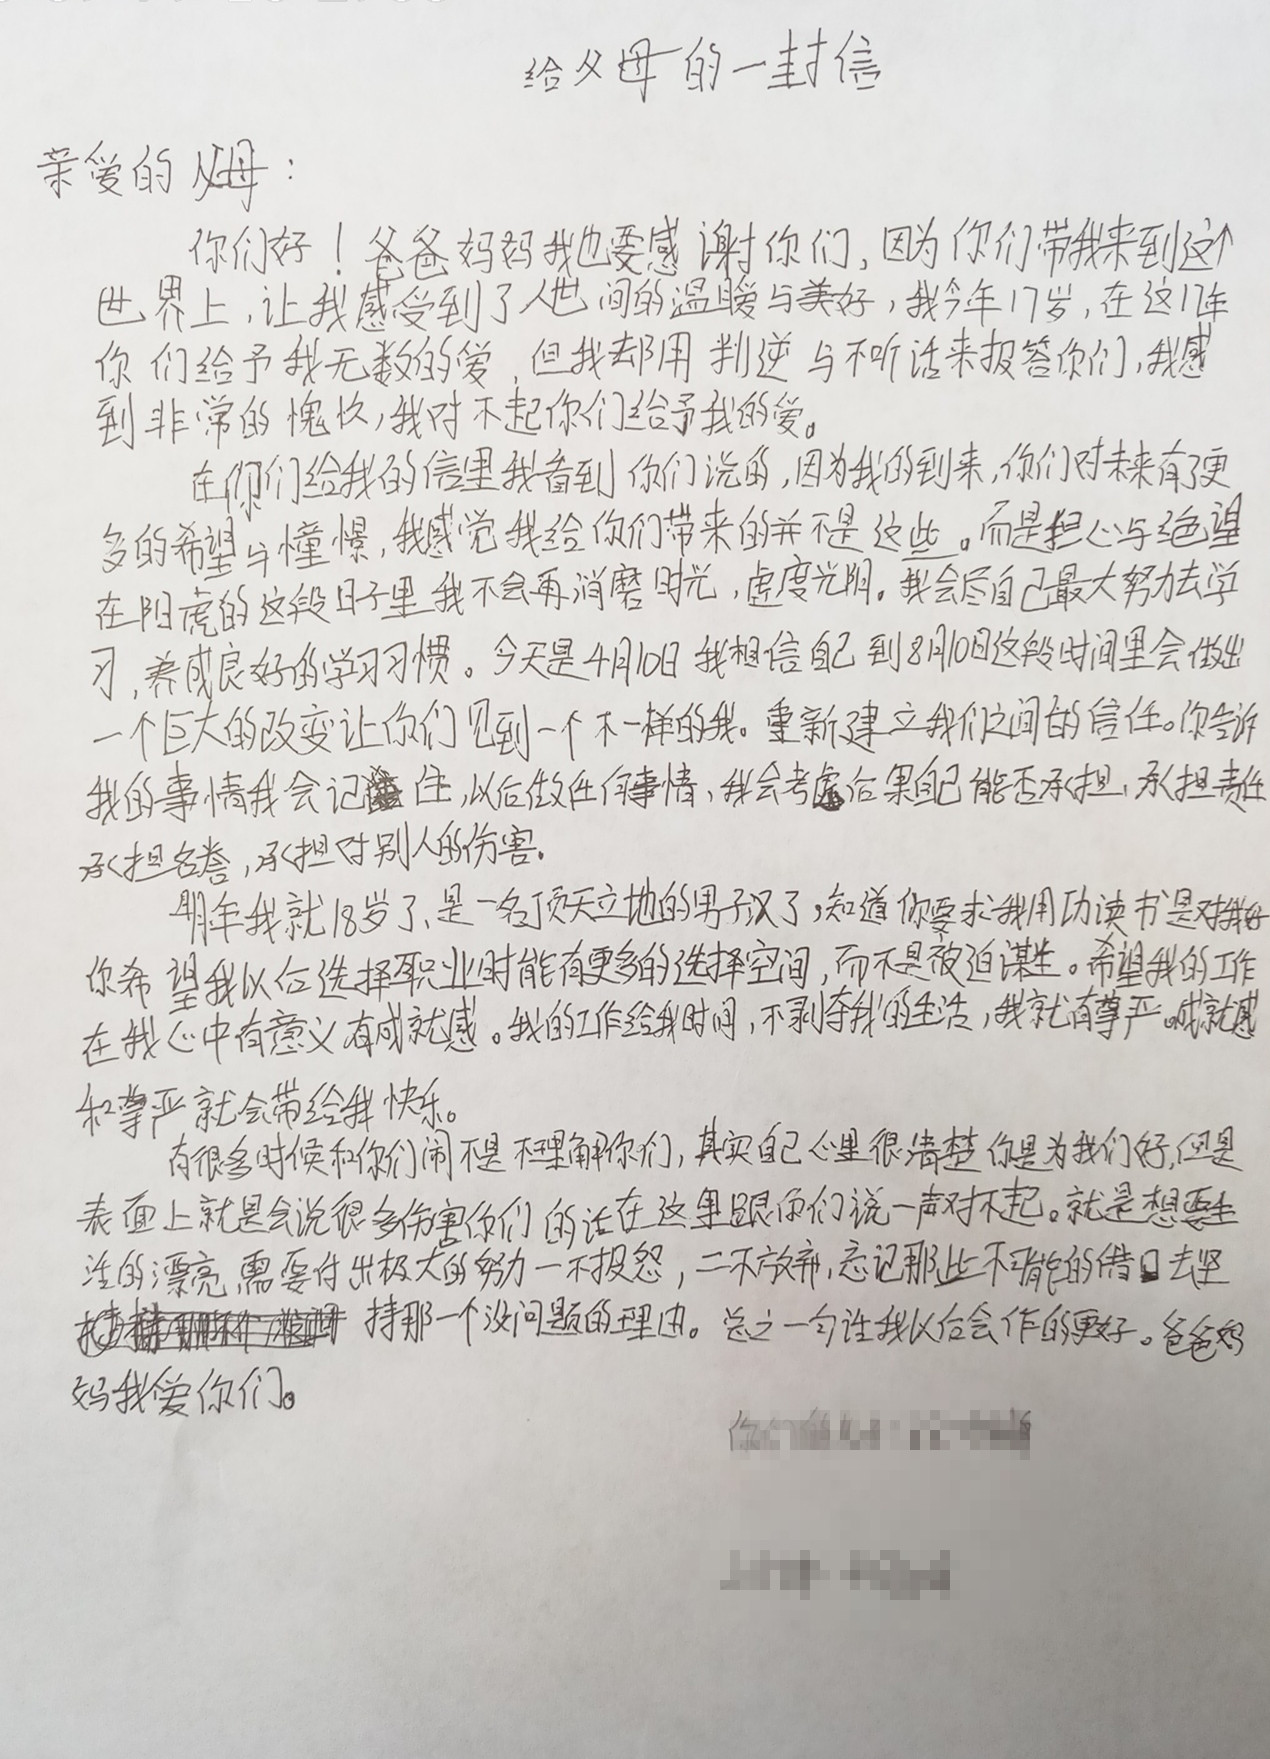 给父母的一封信
亲爱的父母：
你们好！爸爸妈妈我也要感谢你们，因为你们带我来到这个
世界上，让我感受到了人世间的温暖与美好，我今年17岁，在这17年
你们给予我无数的爱，但我却用判逆与不听话来报答你们，我感
到非常的愧疚，我对不起你们给予我的爱。
在你们给我的信里我看到你们说的，因为我的到来，你们对未来有了更
多的希望与憧憬，我感觉我给你们带来的并不是这些。而是担心与绝望
在阳虎的这段日子里我不会再消磨时光，虚度光阴。我会尽自己最大努力去学
习，养成良好的学习习惯。今天是4月10日我相信自己到8月10日这段时间里会做出
一个巨大的改变让你们见到一个不一样的我。重新建立我们之间的信任。你告诉
我的事情我会记住，以后做任何事情，我会考虑后果自己能否承担，承担责任
承担名誉，承担对别人的伤害。
明年我就18岁了，是一名顶天立地的男子汉了，知道你要求我用功读书是对我好
你希望我以后选择职业时能有更多的选择空间，而不是被迫谋生。希望我的工作
在我心中有意义有成就感。我的工作给我时间，不剥夺我的生活，我就有尊严。成就感
和尊严就会带给我快乐。
有很多时候和你们闹不是不理解你们，其实自己心里很清楚你是为我们好，但是
表面上就是会说很多伤害你们的话在这里跟你们说一声对不起。就是想要
的漂亮，需要付出极大的努力一不报怨，二不放弃，忘记那些不可能的借口去坚
持那一个没问题的理由。总之一句话我以后会作的更好。爸爸妈
妈我爱你们。